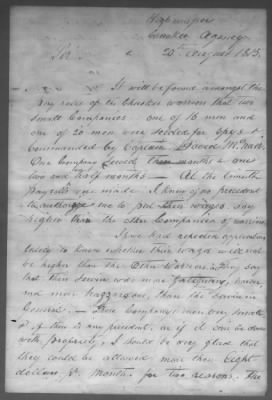 Highwassee
Cherokee Agency
20th August 1815.
Sir
It will be found amongst the
pay rolls of the Cherokee warriors that two
small Companies one of 16 men and
one of 20 men were for spys &
Commanded by Captain David McNair
One Company served three months & one
two and half months — At the
Payrolls are made I know of no precedent
to authorize me to put their wages any
higher than the other Companies of warriors
I have had repeated applications
lately to know whether their wages will not
be higher than the other Warriors. They say
that their service was more fatiguing, harder
and more hazzardous, than the service in
General. — These Companys men were
& if there is any president, or if it can be done
with propriety, I should be very glad that
they could be allowed more than Eight
dollars, pr. Month. for two reasons. the